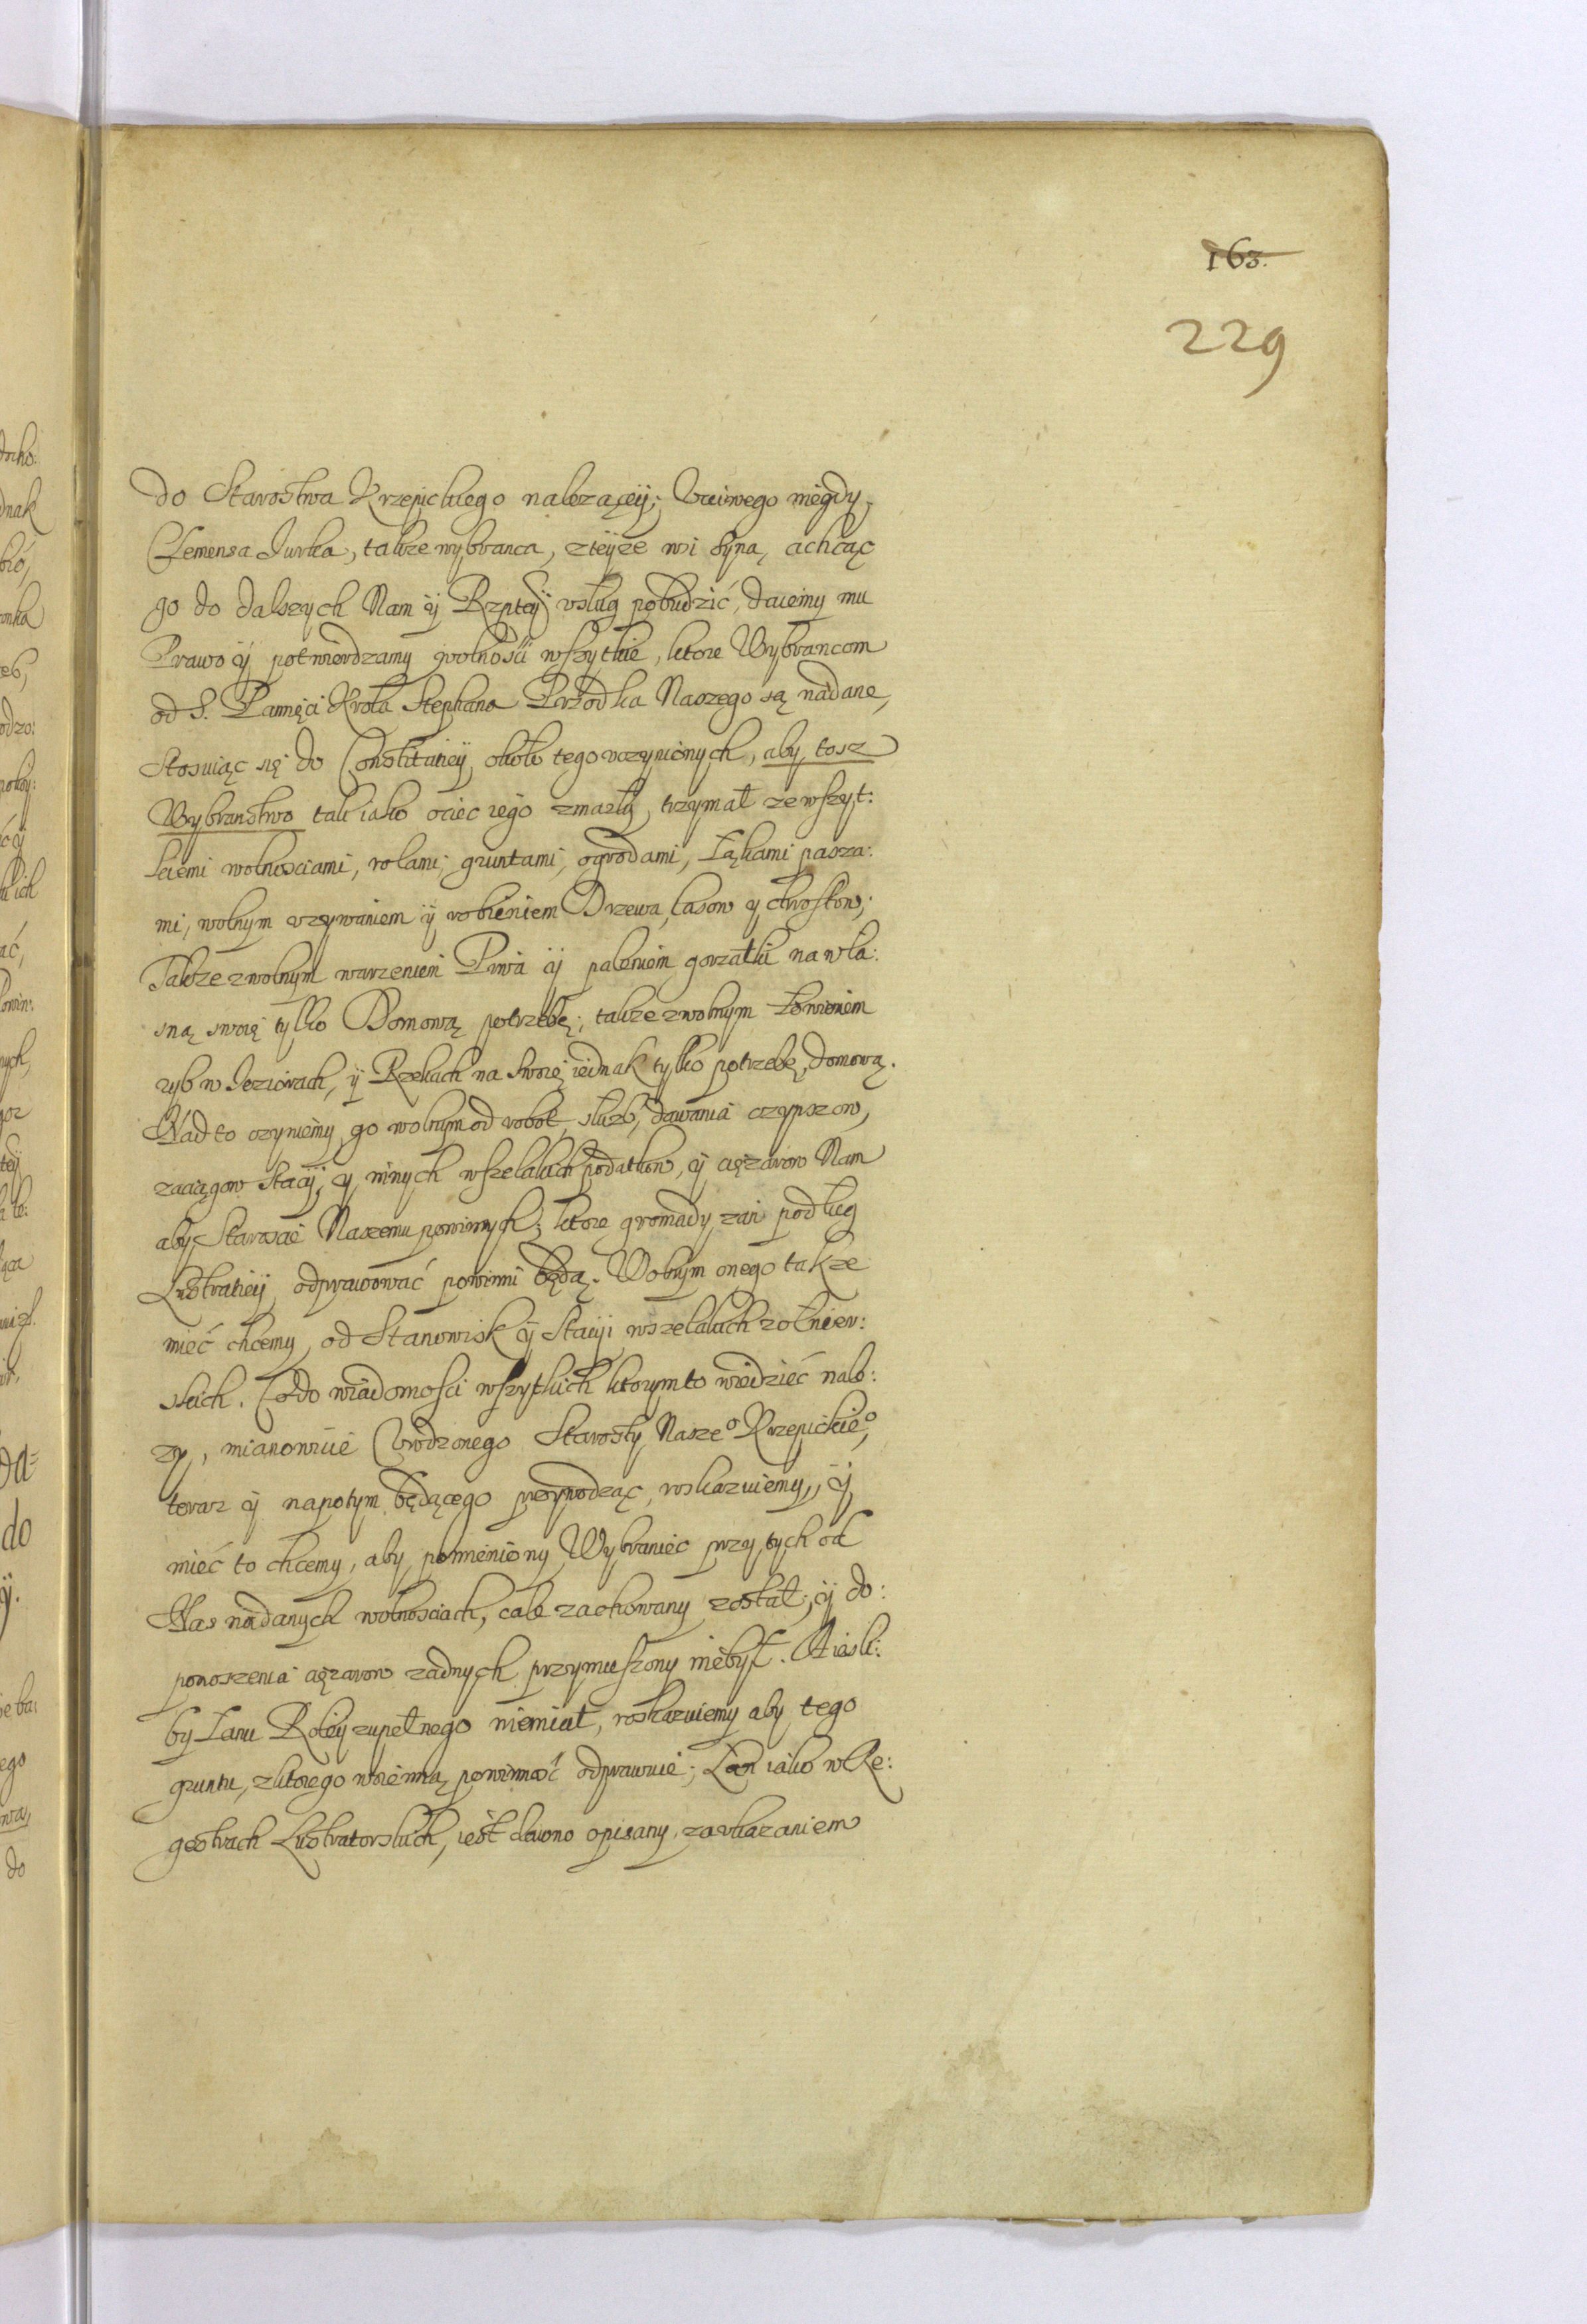 163.
229
do Starostwa Krzepickiego nalezącÿ; Vcciwego niegdy
Clemensa Jurka, takze wybranca, zteÿze wsi syna, achcąc
go do dalszych Nam ÿ Rzptey vslug pobudzić, daiemy mu
Prawo ÿ potwierdzamy wolnosci wszytkie, ktore Wybrancom
od S. Pamięci Krola Stephana Przodka Naszego są nadane,
Stosuiąc się do Constitutieÿ, okolo tego vczynionych, aby tosz
Wybranstwo tak iako ociec iego zmarły, trzymał zewszyt:
kiemi wolnosciami, rolami, gruntami, ogrodami, Łąkami pasza:
mi, wolnym vzywaniem ÿ robieniem Drzewa, lasow y chrostow;
Takze zwolnym warzeniem Piwa ÿ paleniem gorzałki na wła:
sną swoię tylko Domową potrzebę; takze zwolnym Łowieniem
ryb w Jeziorach, ÿ Rzekach na swoię iednak tylko potrzebę, domową.
Nad to czyniemy go wolnym od robot, służb, dawania czynszow,
zaciągow stacÿ, y innych wszelakich podatkow, ÿ cięzarow Nam
aby Staroscie Naszemu powinnych; ktore gromady zań podlug
Lustratieÿ odprawować powinni będą. Wolnym onego takze
mieć chcemy, od Stanowisk ÿ Stacyi wszelakich zołnier:
skich. Co do wiadomosci wszytkich ktorym to wiedzieć nale:
zy, mianowicie Vrodzonego Starosty Nasze⁰ Krzepickie⁰,
teraz ÿ napotym będącego przywodząc, roskazuiemy, ÿ
mieć to chcemy, aby pomieniony Wybraniec przy tych od
Nas nadanych wolnosciach, cale zachowany został, ÿ do:
ponoszenia cięzarow zadnych przymuszony niebył. A iesli:
by Łanu Roleÿ zupełnego niemiał, roskazuiemy aby tego
gruntu, zktorego woienną powinność odprawuie, Łan iako w Re:
gestrach Lustratorskich, iest dawno opisany, zavkazaniem